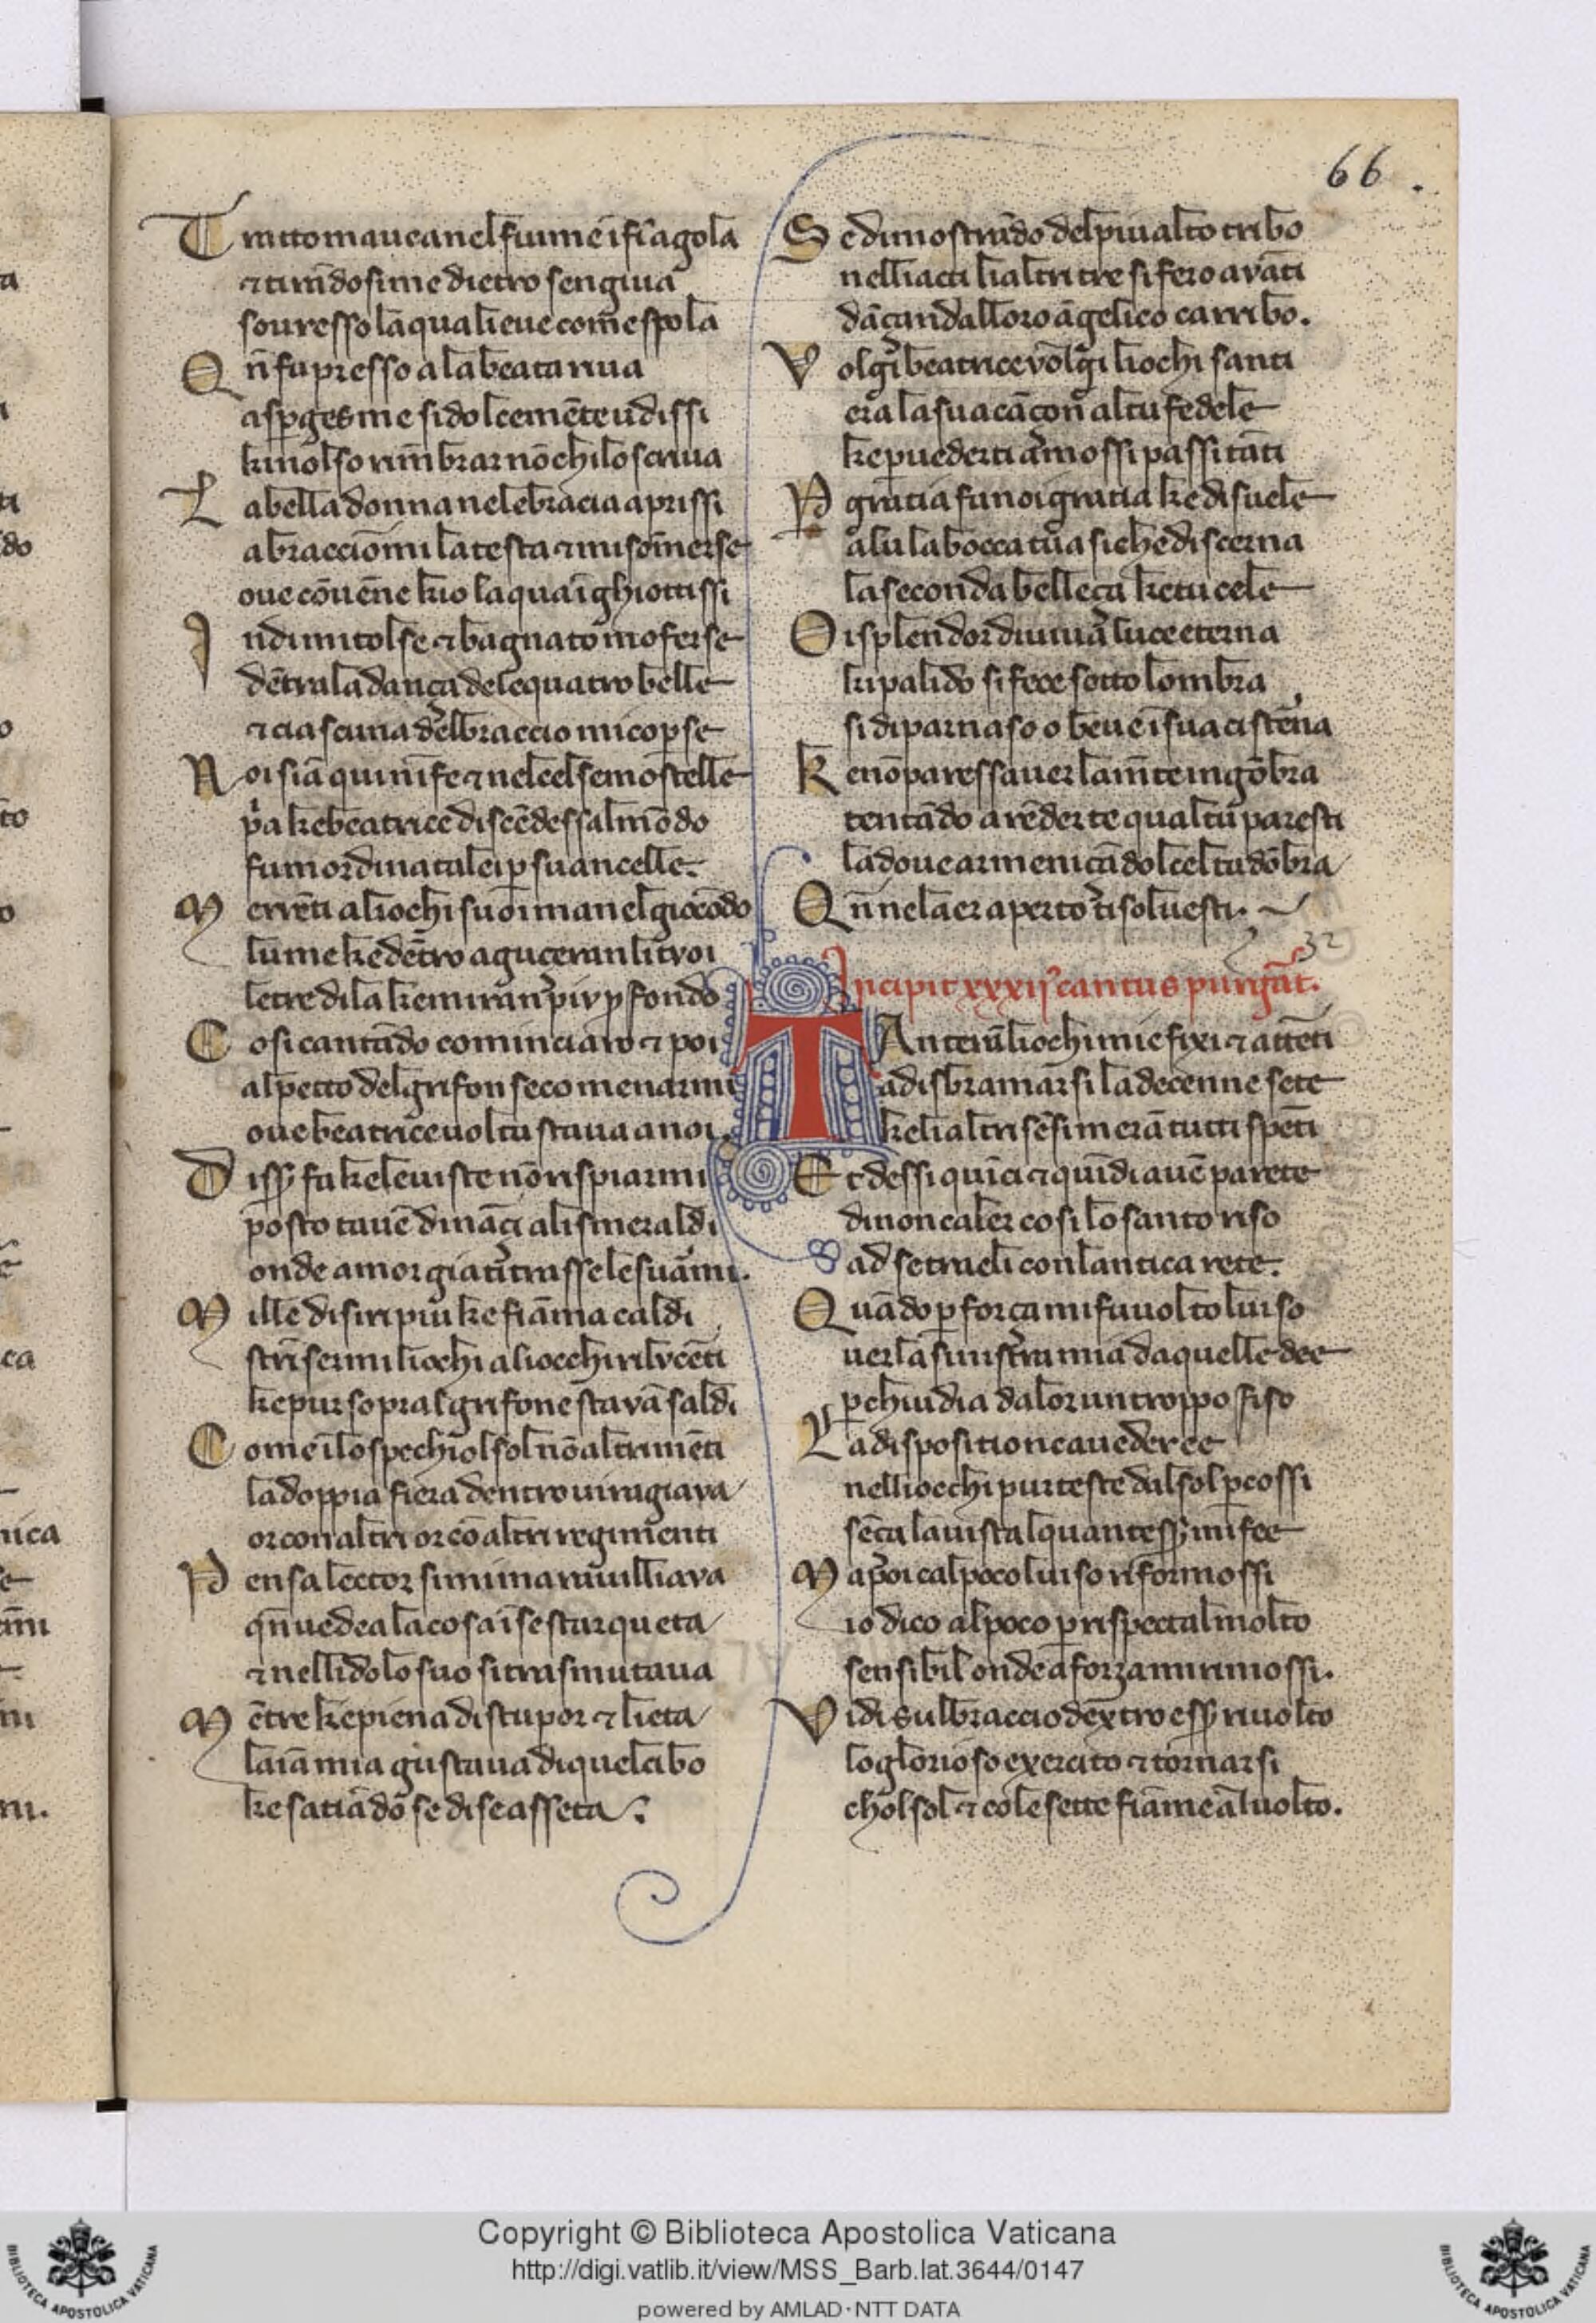 66.
Tratto mauea nel fiume ifī agola
⁊ tirādosi me dietro sen giua
souresso laqua lieue come spola
Qn̄ fu presso a la beata riua
asperges me si dolcemēte udissi
kinol so rimbrar nō chi lo scriua
La bella donna nele braccia aprissi
abracciōmi la testa ⁊ mi somerse
oue cōuēne kio laqua īghiottissi
Indi mi tolse ⁊ bagnato mo ferse
dētra la dança de le quatro belle
⁊ ciascuna del braccio mi copse
Noi siā qui nīfe ⁊ nel ciel semo stelle
pͥa ke beatrice discēdessal mōdo
fumo ordinatale ip̄ su ancelle.
Merrēti a liochi suoi ma nel giocōdo
lume ke dētro aguceran li tuoi
le tre di la ke miran piu ꝓfondo
Cosi cantādo cominciaro ⁊ poi
al petto del grifon seco menarmi
oue beatrice uolta staua a noi.
Disser fa ke le uiste nō rispiarmi
posto tauē dināçi ali smeraldi
onde amor gia ti trasse le suarmi.
Mille disiri piu ke fiāma caldi
strīsermi liochi aliocchi rilucēti
ke pur sopral grifone stauā saldi
Come ilo spechiol sol nō altrimēti
la doppia fiera dentro ui ragiaua
or con altri or cō altri regimenti
Pensa lector simi marauilliaua
qn̄ uedea la cosa ī se star queta
⁊ nellidolo suo si trasmutaua
Mētre ke piena di stupor ⁊ lieta
laīa mia gustaua di quel cibo
ke satiādo se di se asseta.
Se dimostrādo del piu alto tribo
nelli acti lialtri tre si fero auāti
dāçandal loro āgelico carribo.
Volgi beatrice uolgi liochi santi
era la sua cāçon al tu fedele
ke per uederti a mossi passi tāti
P gratia fa noi gratia ke disuele
a lui la bocca tua si ke discerna
la seconda belleça ke tu cele
O isplendor di uiua luce eterna
ki palido si fece sotto lombra
si di parnaso o beue ī sua cisterna
Ke nō paressauer la mēte ingōbra
tentādo a rēder te qual tu paresti
la doue armenicādol ciel tadōbra
Qn̄ ne laer aperto ti soluesti.
32
Incipit xxxij cantus purgat̄.
TAnterā liochi mie fixi ⁊ attēti
a disbramarsi la decenne sete
ke lialtri sēsi merā tutti spēti
Et dessi quīci ⁊ quīdi auē parete
di non caler cosi lo santo riso
ad se traeli con lantica rete.
Quādo p̄ força mi fu uolto luiso
uer la sinistra mia da quelle dee
p̄chiudia dalor un troppo fiso
La dispositione caueder ee
nelliocchi pur teste dal sol p̄cossi
sēça la uista lquantesser mi fee
Ma poi cal poco luiso riformossi
io dico al poco p̄ rispectal molto
sensibil onde a forza mi rimossi.
Vidi sul braccio dextro esser riuolto
lo glorioso exercito ⁊ tornarsi
chol sol ⁊ cole sette fiāme al uolto.
Copyright © Biblioteca Apostolica Vaticana
http://digi.vatlib.it/view/MSS_Barb.lat.3644/0147
powered by AMLAD·NTT DATA
BIBLIOTECA APOSTOLICA VATICANA
BIBLIOTECA APOSTOLICA VATICANA